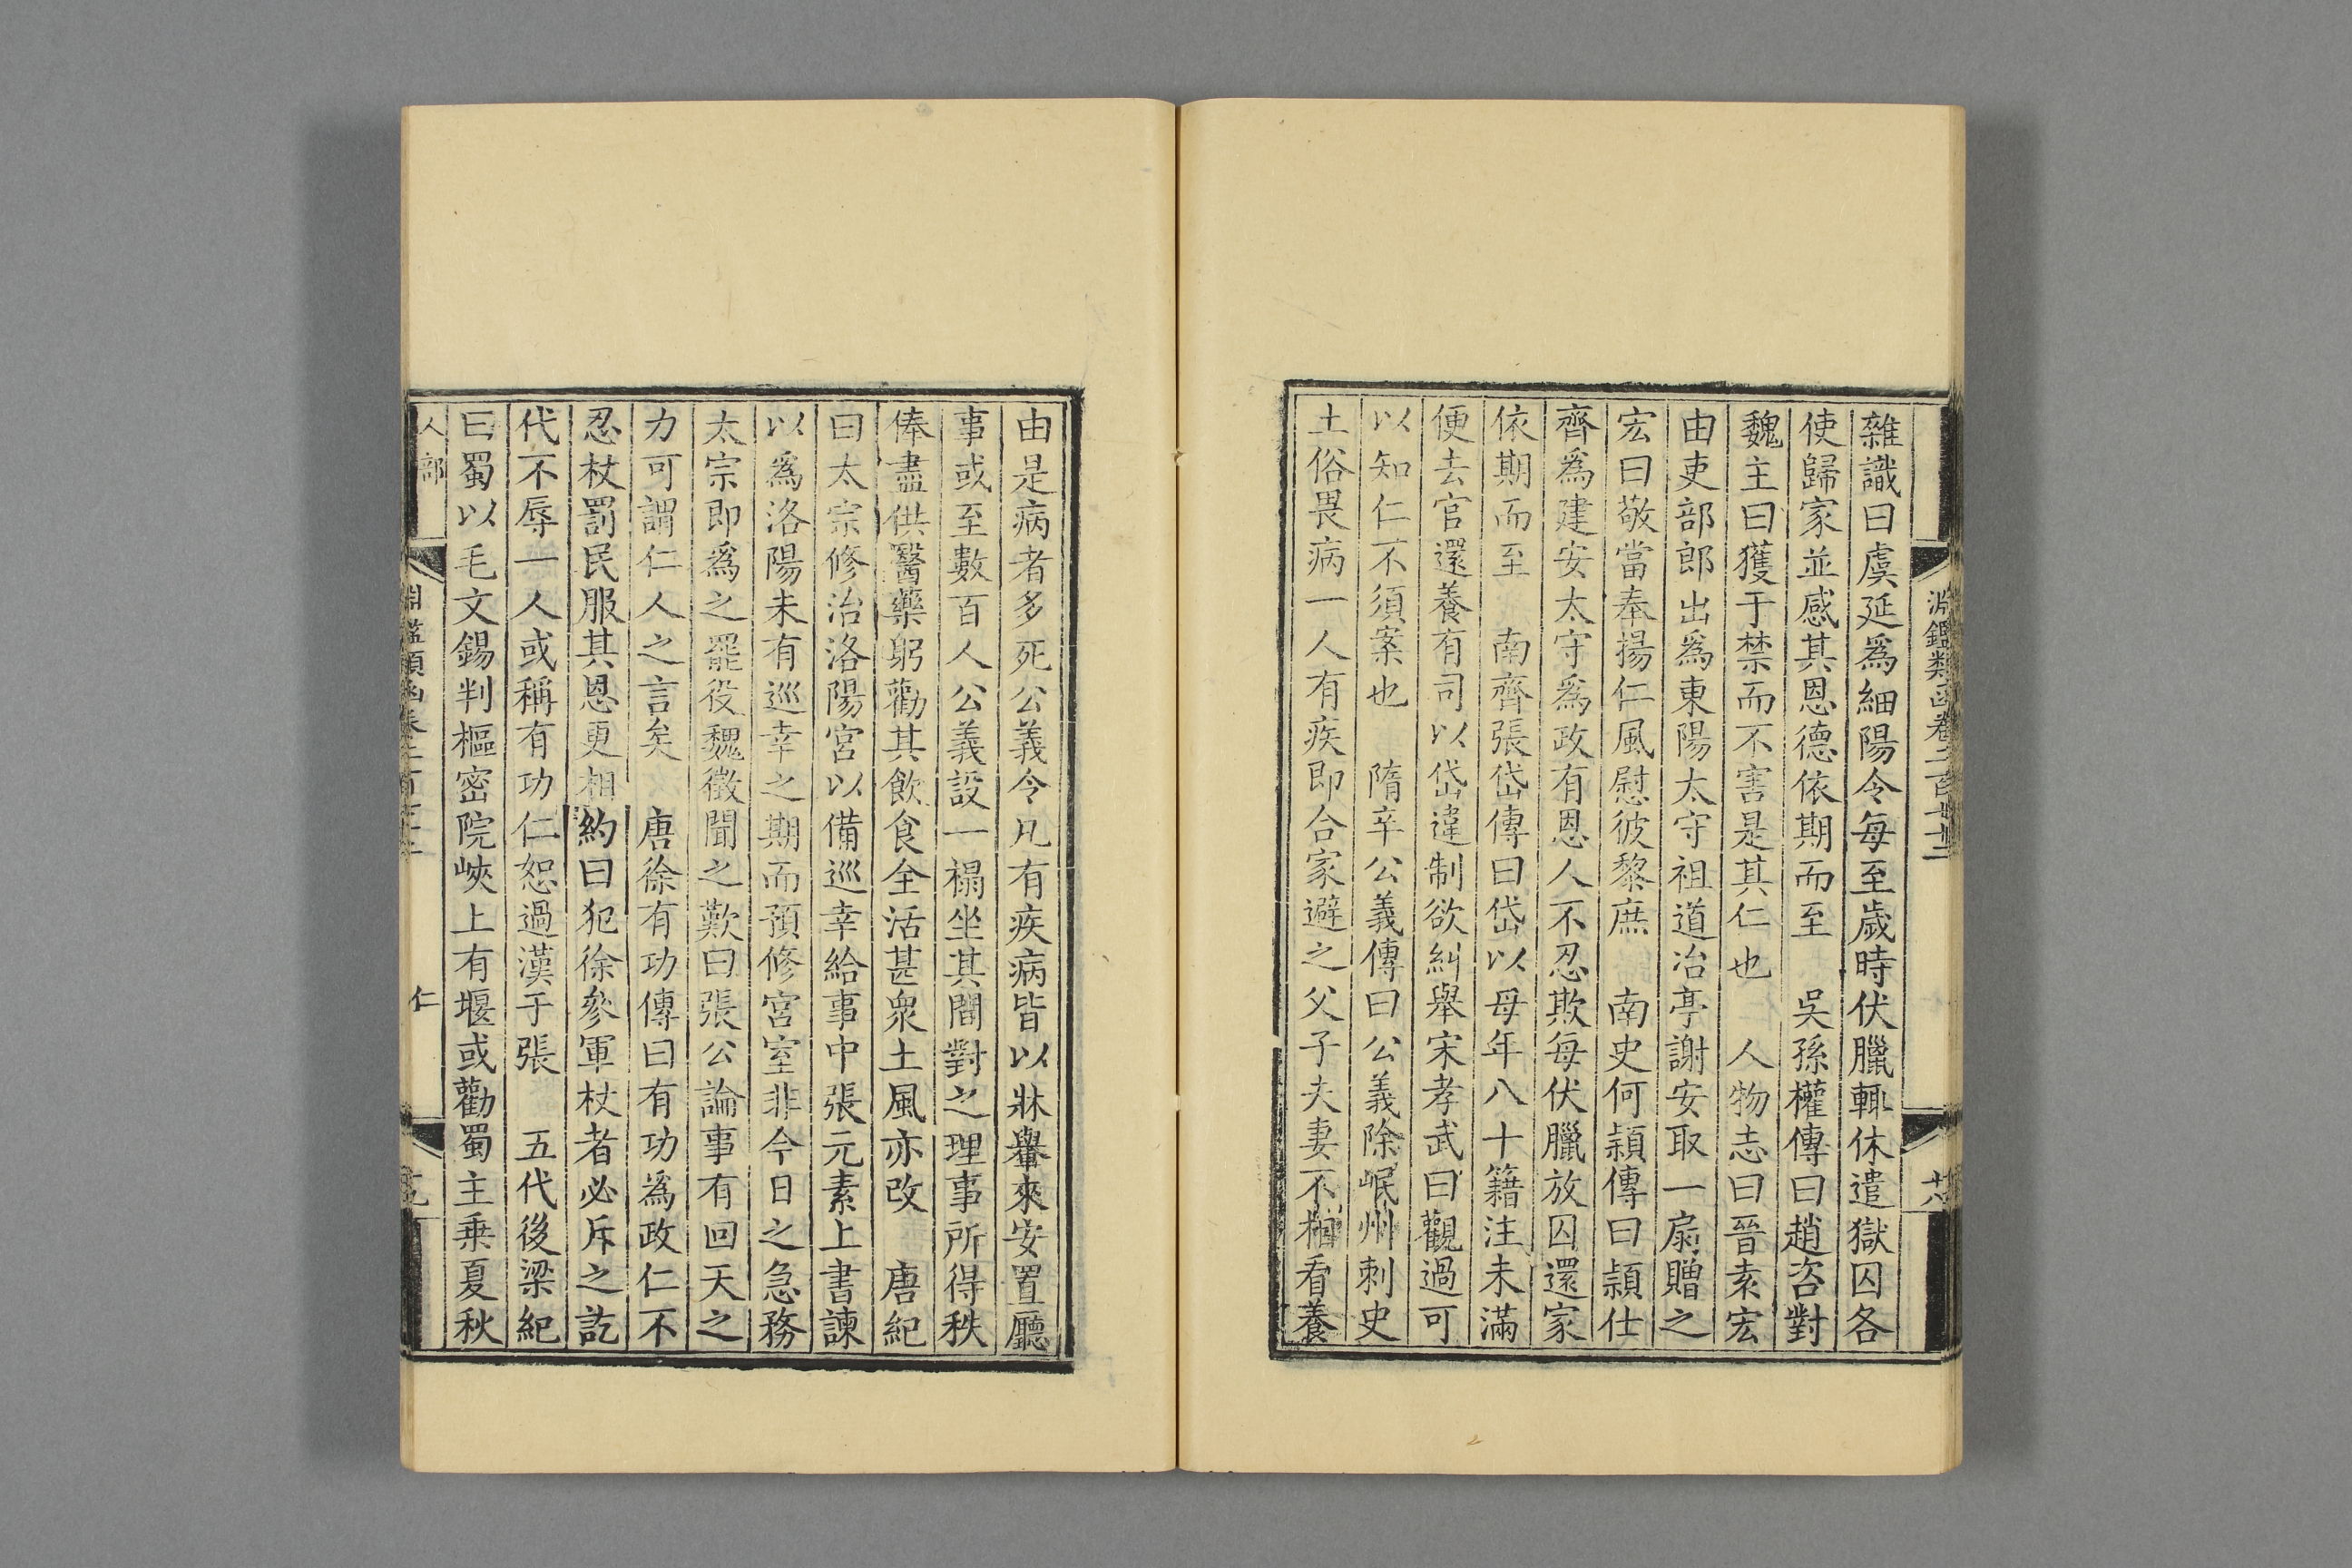 雜識曰虞延爲細陽令每至歲時伏臘輒休遣獄囚各
使歸家並感其恩德依期而至　吳孫權傳曰趙咨對
魏主曰獲于禁而不害是其仁也　人物志曰晉袁宏
由吏部郎出爲東陽太守祖道冶亭謝安取一扇贈之
宏曰敬當奉揚仁風慰彼黎庶　南史何頴傳曰頴仕
齊爲建安太守爲政有恩人不忍欺每伏臘放囚還家
依期而至　南齊張岱傳曰岱以母年八十籍注未滿
便去官還養有司以岱違制欲糾舉宋孝武曰觀過可
以知仁不須案也　隋辛公義傳曰公義除岷州刺史
土俗畏病一人有疾即合家避之父子夫妻不相看養
淵鑑類函卷二百
由是病者多死公義令凡有疾病皆以牀轝來安置廳
事或至數百人公義設一榻坐其間對之理事所得秩
俸盡供醫藥躬勸其飲食全活甚衆土風亦改　唐紀
曰太宗修治洛陽宮以備巡幸給事中張元素上書諫
以爲洛陽未有巡幸之期而預修宮室非今日之急務
太宗即爲之罷役魏徵聞之歎曰張公論事有回天之
力可謂仁人之言矣　唐徐有功傳曰有功爲政仁不
忍杖罰民服其恩更相約曰犯徐參軍杖者必斥之訖
代不辱一人或稱有功仁恕過漢于張　五代後梁紀
曰蜀以毛文錫判樞密院峽上有堰或勸蜀主乗夏秋
人部
仁